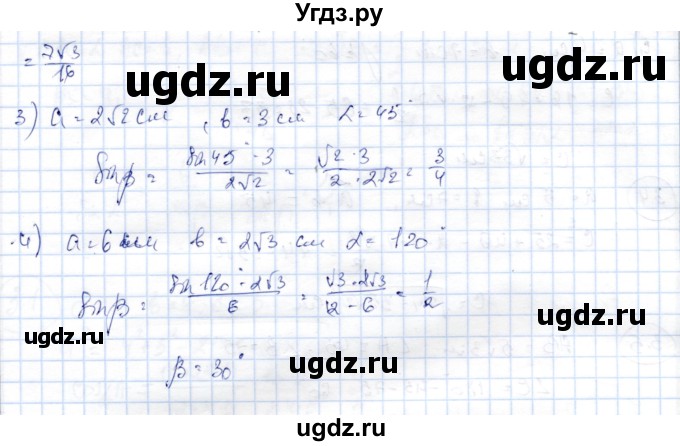 Угдз.ру
= 7√3/16
ugdz.ru ugdz.ru
3) a = 2√2 см, b = 3 см α = 45°
sinβ = sin45° · 3 / 2√2 = √2 · 3 / 2 · 2√2 = 3/4
ugdz.ru ugdz.ru
4) a = 6 см b = 2√3 см α = 120°
sinβ = sin120° · 2√3 / 6 = √3 · 2√3 / 2 - 6 = 1/2
ugdz.ru ugdz.ru
β = 30°
ugdz.ru ugdz.ru